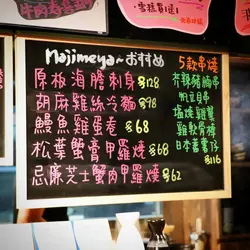 Mojimeya~おすすめ
原板海膽刺身 $128
胡麻雞絲冷麵 $78
鰻魚雞蛋卷 $68
松葉蟹膏甲羅燒 $68
忌廉芝士蟹肉甲羅燒 $62
5款串燒
芥辣豬胸串
帆立貝串
塩燒雞翼
雞軟骨棒
日本蕃薯
$116